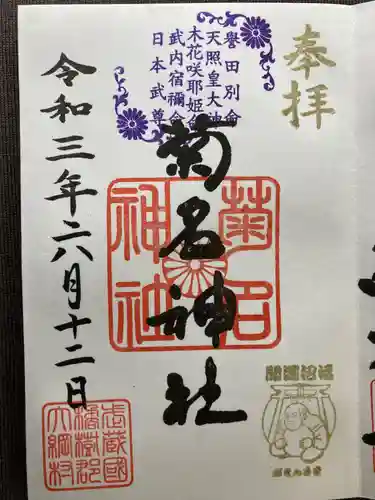 奉拝
誉田別命
天照皇大神
木花咲耶姫命
武内宿禰命
日本武尊
菊名神社
菊名
神社
令和三年二八月十二日
武蔵國
橘樹郡
大綱村